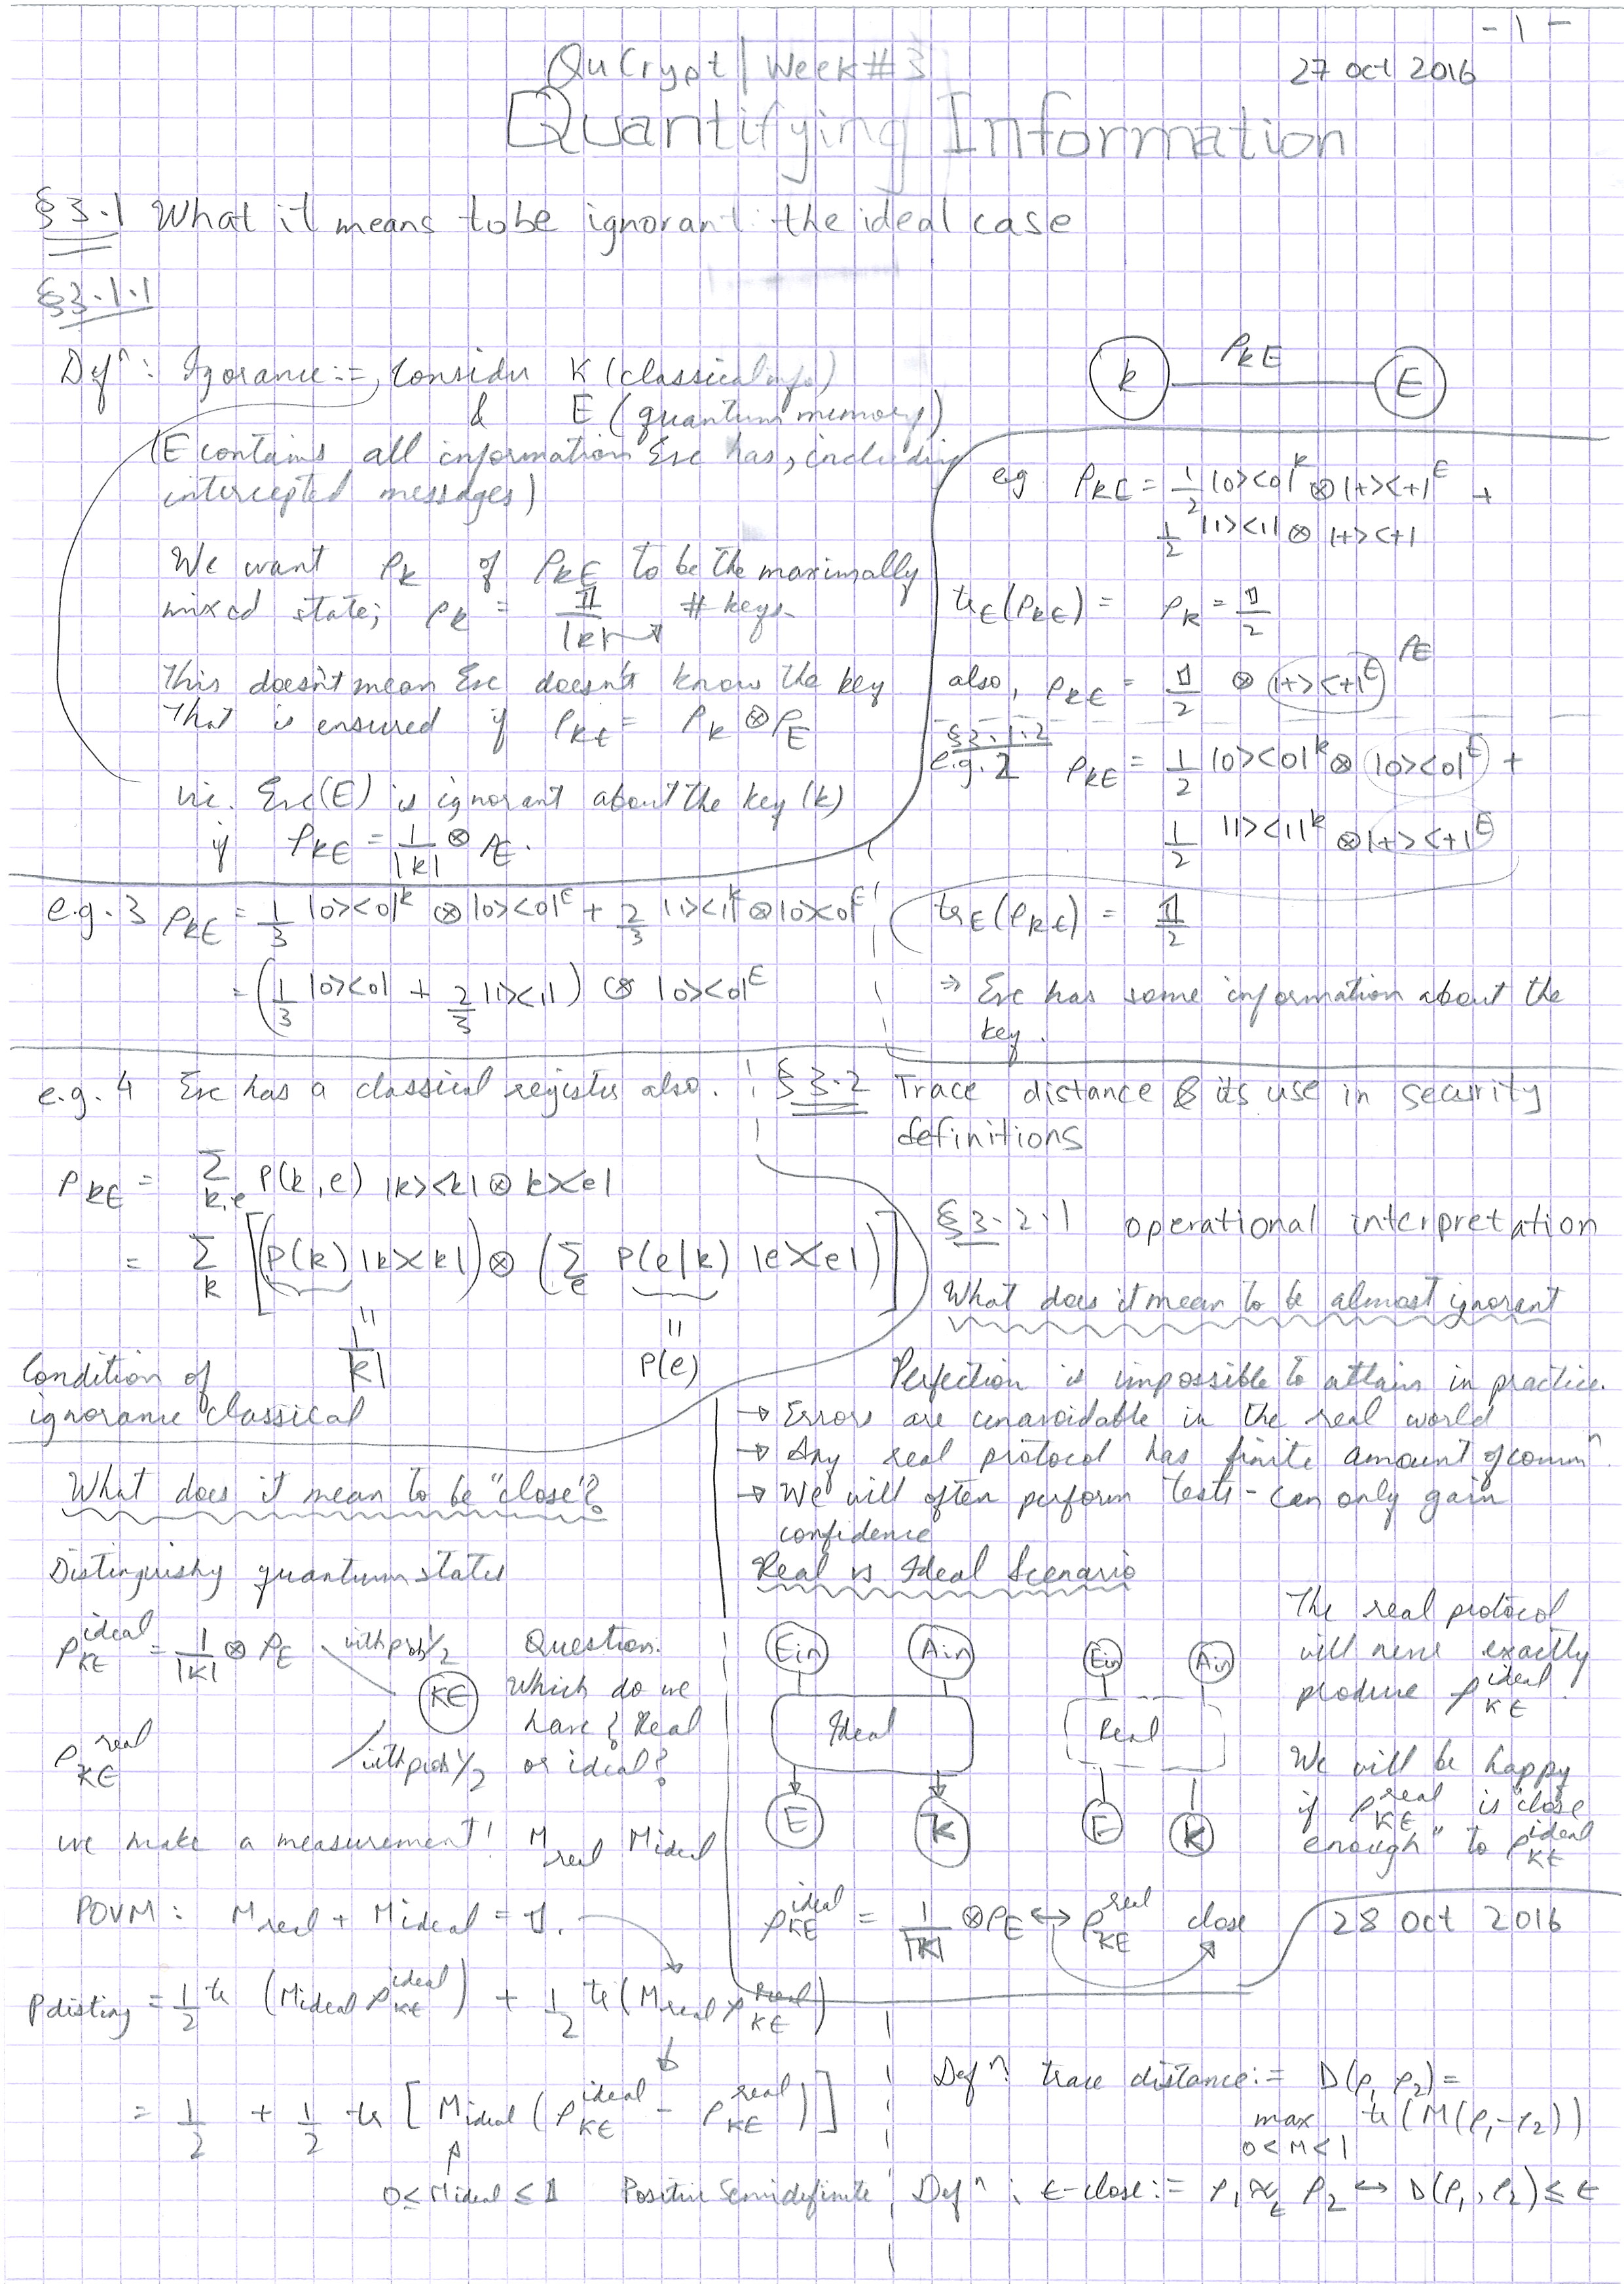 - 1 -
QuCrypt | Week #3
27 Oct 2016
Quantifying Information
§3.1 What it means to be ignorant: the ideal case
§3.1.1
Defⁿ: Igorance :=, Consider K (classical info)
& E (quantum memory)
(E contains all information Eve has, including
intercepted messages)
We want ρ_k of ρ_kE to be the maximally
mixed state; ρ_k = 𝟙/|k| → # keys.
This doesn't mean Eve doesn't know the key
That is ensured if ρ_kE = ρ_k ⊗ ρ_E
viz. Eve(E) is ignorant about the key (k)
if ρ_kE = 1/|k| ⊗ ρ_E.
k ρ_kE E
eg ρ_kE = 1/2 |0><0|^k ⊗ |+><+|^E +
1/2 |1><1| ⊗ |+><+|
tr_E(ρ_kE) = ρ_k = 𝟙/2
also, ρ_kE = 𝟙/2 ⊗ |+><+|^E ρ_E
§3.1.2
e.g. 2 ρ_kE = 1/2 |0><0|^k ⊗ |0><0|^E +
1/2 |1><1|^k ⊗ |+><+|^E
tr_E(ρ_kE) = 𝟙/2
⇒ Eve has some information about the
key.
e.g. 3 ρ_kE = 1/3 |0><0|^k ⊗ |0><0|^E + 2/3 |1><1|^k ⊗ |0><0|^E
= (1/3 |0><0| + 2/3 |1><1|) ⊗ |0><0|^E
e.g. 4 Eve has a classical register also.
ρ_kE = Σ_{k,e} P(k,e) |k><k| ⊗ |e><e|
= Σ_k [(P(k) |k><k|) ⊗ (Σ_e P(e|k) |e><e|)]
= 1/|k|
= P(e)
Condition of
ignorance classical
§3.2 Trace distance & its use in security
definitions
§3.2.1 operational interpretation
What does it mean to be almost ignorant
Perfection is impossible to attain in practice.
→ Errors are unavoidable in the real world
→ Any real protocol has finite amount of commⁿ.
→ We will often perform tests - can only gain
confidence
Real vs Ideal Scenario
Ein Ain Ein Ain
Ideal Real
E K E K
The real protocol
will never exactly
produce ρ_KE^ideal.
We will be happy
if ρ_KE^real is "close
enough" to ρ_KE^ideal
ρ_KE^ideal = 1/|K| ⊗ ρ_E ↔ ρ_KE^real close
What does it mean to be "close"?
Distinguishg quantum states
ρ_KE^ideal = 1/|K| ⊗ ρ_E with prob 1/2
KE
ρ_KE^real with prob 1/2
Question:
Which do we
have? Real
or ideal?
we make a measurement! M_real M_ideal
POVM: M_real + M_ideal = 𝟙.
P disting = 1/2 tr (M_ideal ρ_KE^ideal) + 1/2 tr (M_real ρ_KE^real)
= 1/2 + 1/2 tr [M_ideal (ρ_KE^ideal - ρ_KE^real)]
0 ≤ M_ideal ≤ 𝟙 Positive Semidefinite
28 Oct 2016
Defⁿ: trace distance := D(ρ₁ ρ₂) =
max_{0<M<1} tr (M(ρ₁-ρ₂))
Defⁿ: ε-close := ρ₁ ≈_ε ρ₂ ↔ D(ρ₁,ρ₂) ≤ ε